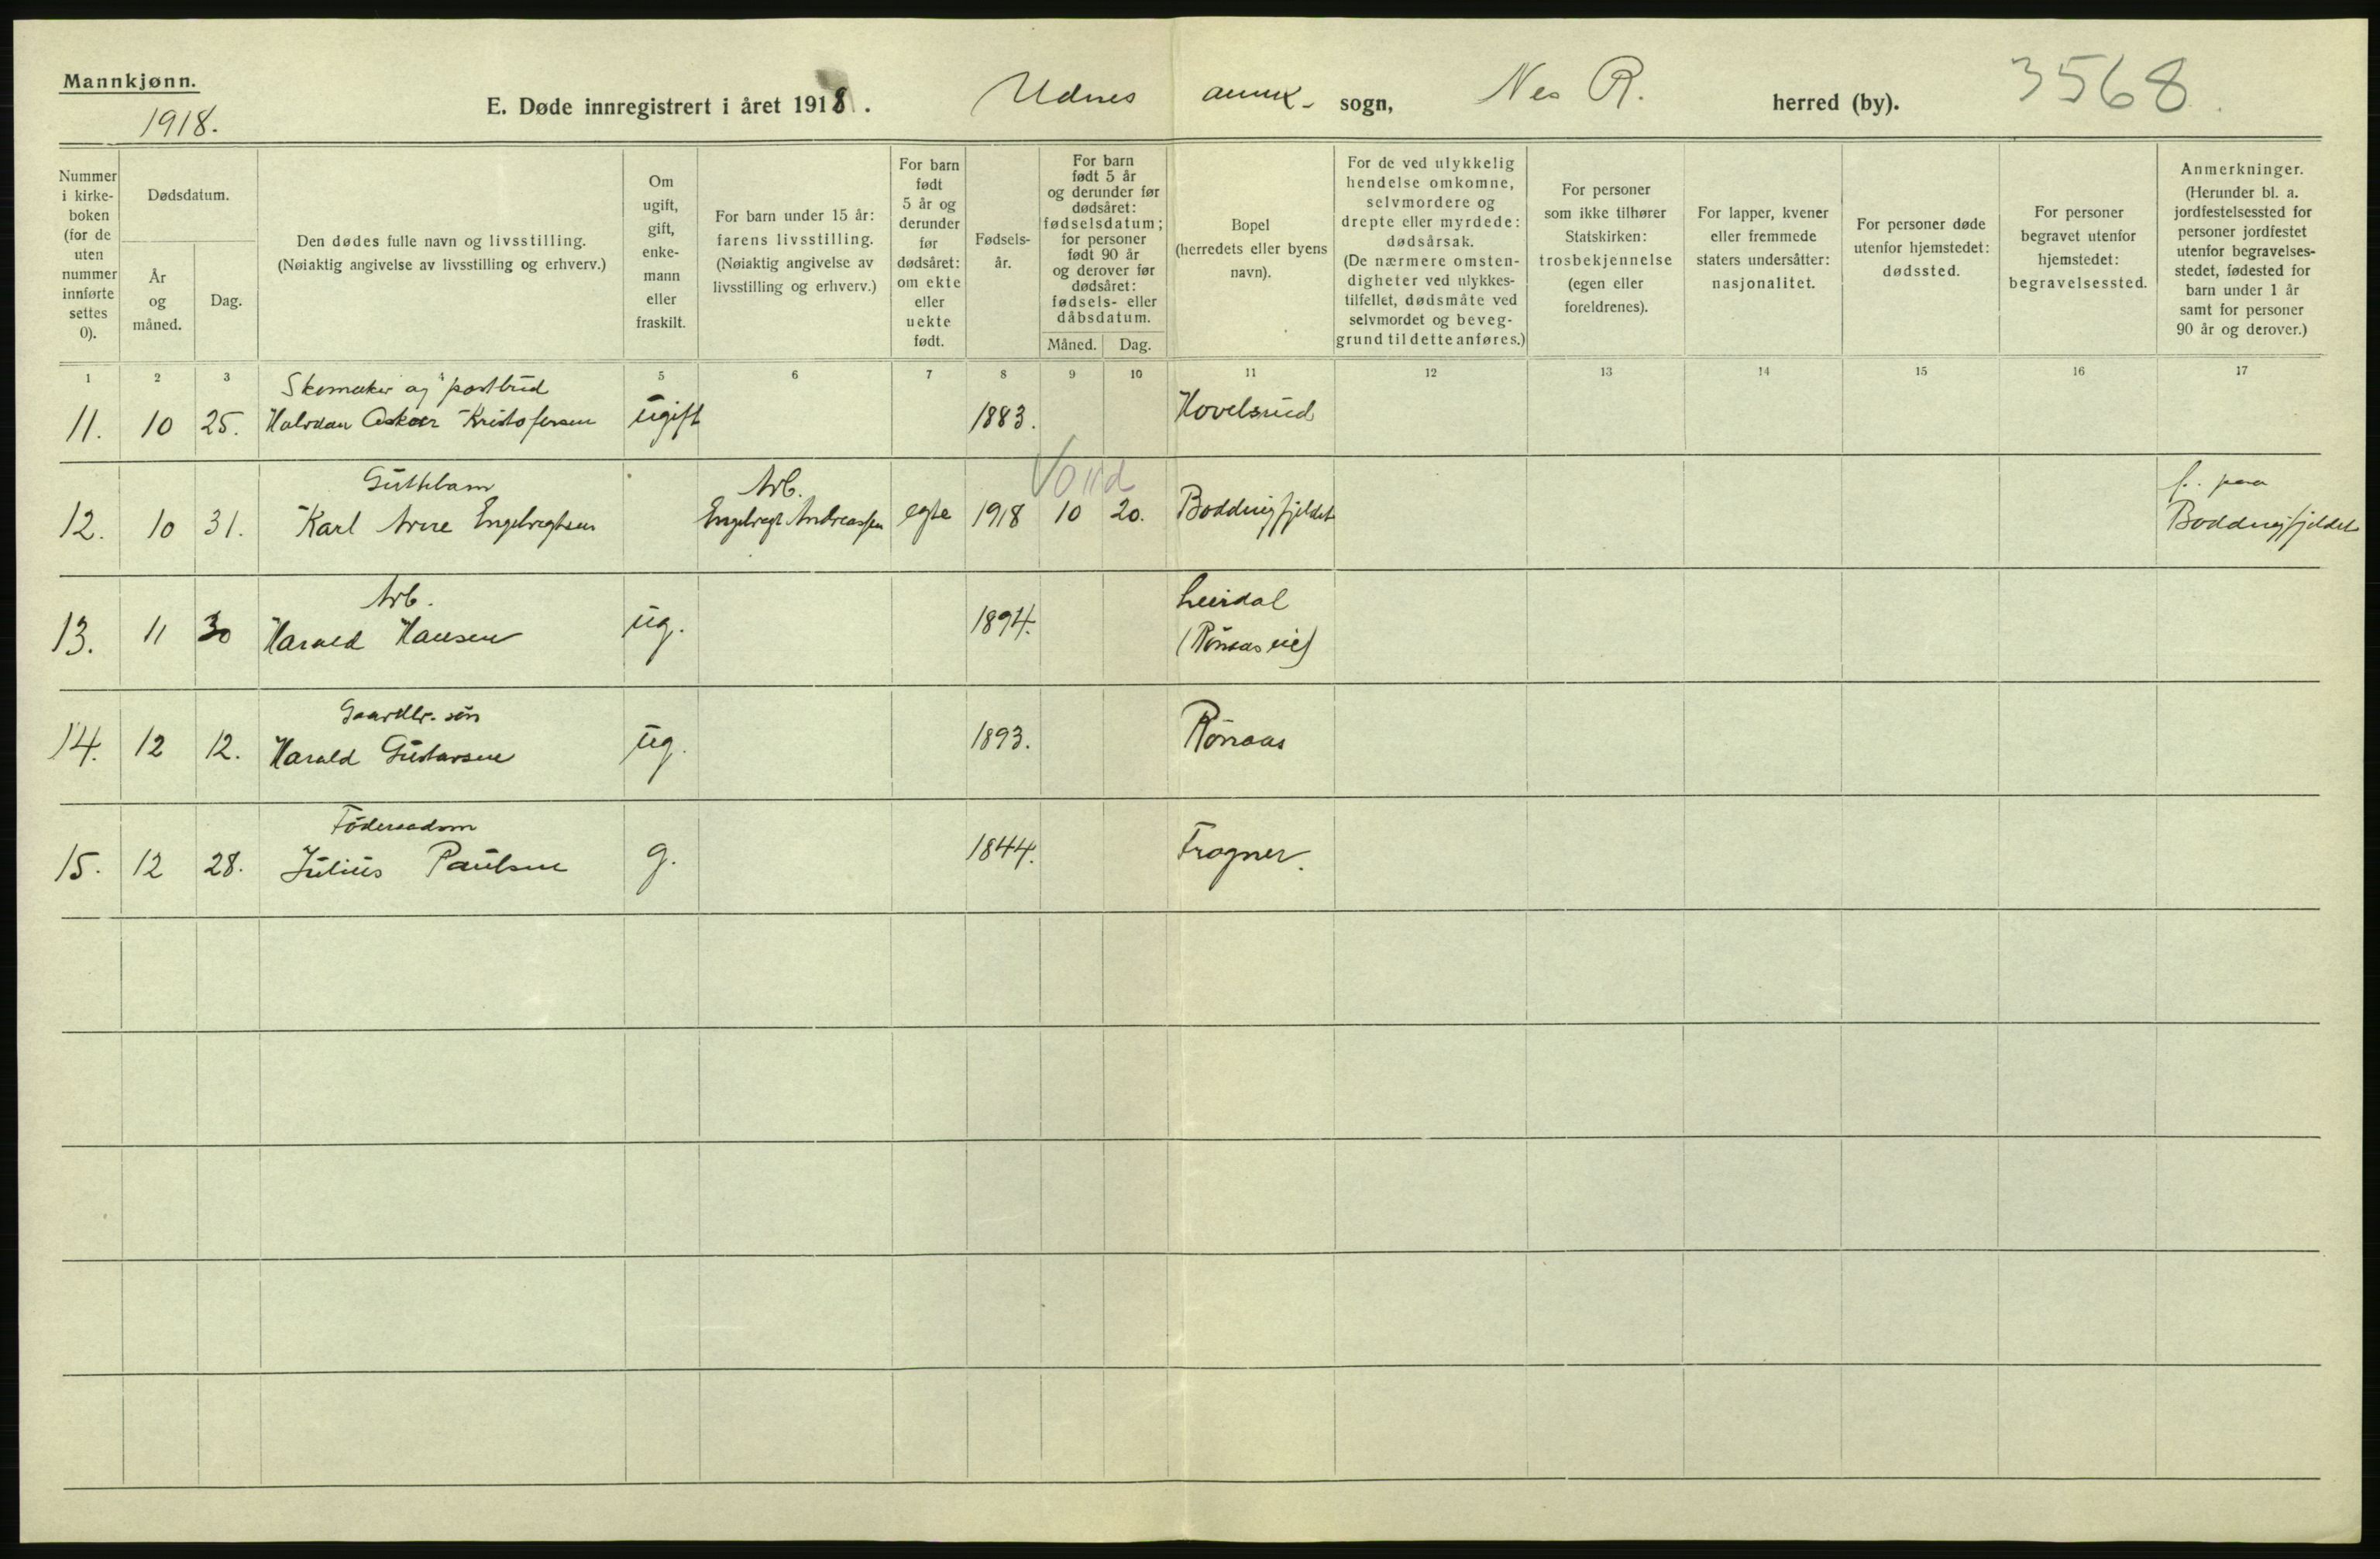 Mannkjønn.
1918.
E. Døde innregistrert i året 1918.
Udnes annx. sogn,
Nes R. herred (by).
3568
Nummer i kirke-boken (for de uten nummer innførte settes 0).
Dødsdatum.
År og måned.
Dag.
Den dødes fulle navn og livsstilling.
(Nøiaktig angivelse av livsstilling og erhverv.)
Om ugift, gift, enke-mann eller fraskilt.
For barn under 15 år: farens livsstilling.
(Nøiaktig angivelse av livsstilling og erhverv.)
For barn født 5 år og derunder før dødsåret: om ekte eller uekte født.
Fødsels-år.
For barn født 5 år og derunder før dødsåret: fødselsdatum; for personer født 90 år og derover før dødsåret: fødsels- eller dåbsdatum.
Måned. Dag.
Bopel (herredets eller byens navn).
For de ved ulykkelig hendelse omkomne, selvmordere og drepte eller myrdede: dødsårsak.
(De nærmere omsten-digheter ved ulykkes-tilfellet, dødsmåte ved selvmordet og beveg-grund til dette anføres.)
For personer som ikke tilhører Statskirken: trosbekjennelse (egen eller foreldrenes).
For lapper, kvener eller fremmede staters undersåtter: nasjonalitet.
For personer døde utenfor hjemstedet: dødssted.
For personer begravet utenfor hjemstedet: begravelsessted.
Anmerkninger.
(Herunder bl. a. jordfestelsessted for personer jordfestet utenfor begravelses-stedet, fødested for barn under 1 år samt for personer 90 år og derover.)
1 2 3 4 5 6 7 8 9 10 11 12 13 14 15 16 17
Skomaker og postbud
11. 10 25. Halvdan Oskar Kristofersen ugift 1883. Hovelsrud
Guttebarn Arb. V 011d f. paa
12. 10 31. Karl Arne Engebregtsen Engebregt Andreassen egte 1918 10 20. Boddingfjeldet Boddingfjeldet
Arb. Leirdal
13. 11 30 Harald Hansen ug. 1894. (Rönaas eie)
Gaardbr. sön
14. 12 12. Harald Gustavsen ug. 1893. Rönaas
Föderaadsm
15. 12 28. Julius Paulsen g. 1844. Frogner.